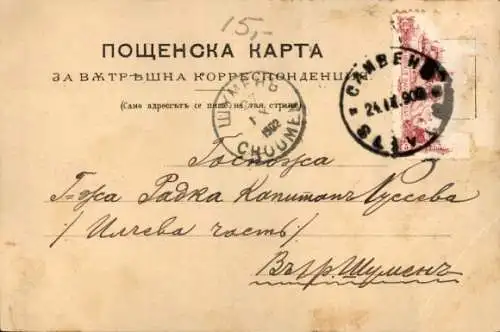 15,-
ПОЩЕНСКА КАРТА
ЗА ВѪТРѢШНА КОРРЕСПОНДЕНЦИЯ
(Само адресътъ се пише на тая страна)
ШУМЕНЪ
1902
CHOUMEN
СЛИВЕНЪ
24.IX.902
Госпожа
Г-жа Радка Капитанъ Русева
/Илчева часть/
Вътр. Шуменъ